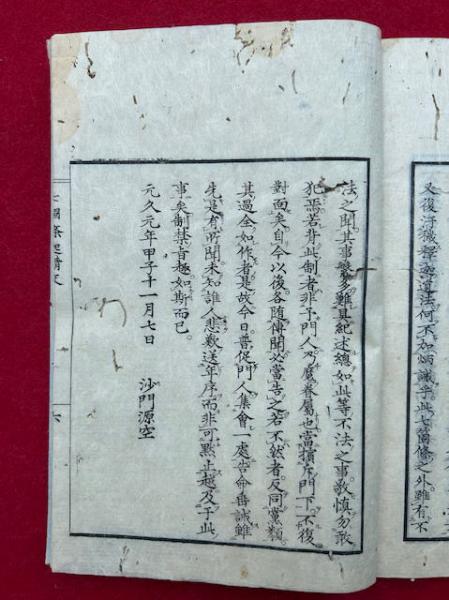 又復訛謬邪道法何不加炳誡乎此七箇條之外雖有不
法之聞其事繁多難具紀述總如此等不法之事敬慎勿敢
犯焉若背此制者非予門人乃魔眷屬也當擯斥門下不復
對面矣自今以後各隨傳聞必當告之若不然者反同黨類
其過全如作者是故今日普促門人集會一處告命番誡雖
先是有所聞未知誰人悲歎送年序而非可默止越及于此
事矣制禁旨趣如斯而已
元久元年甲子十一月七日
沙門源空
七箇條起請文
六